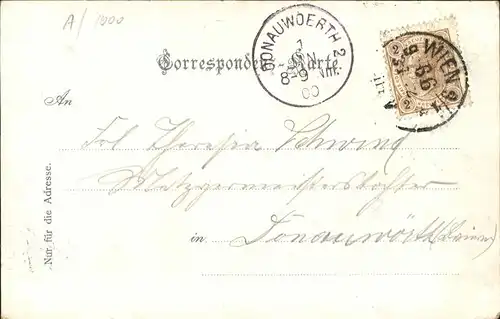 A/1900
Correspondenz-Karte
DONAUWOERTH 2
1
JAN
8-9 Nm.
00
2 2
WIEN
99
An
Frl Theresia Schwind
Metzgermeisterstochter
in Donauwörth (Baiern)
Nur für die Adresse.